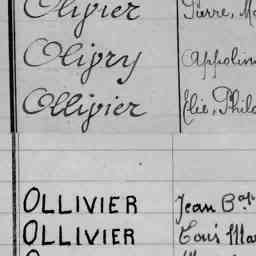 Olivier Pierre, Ma
Oligry Appolin
Ollivier Elie, Phil
OLLIVIER Jean Bap
OLLIVIER Louis Mar